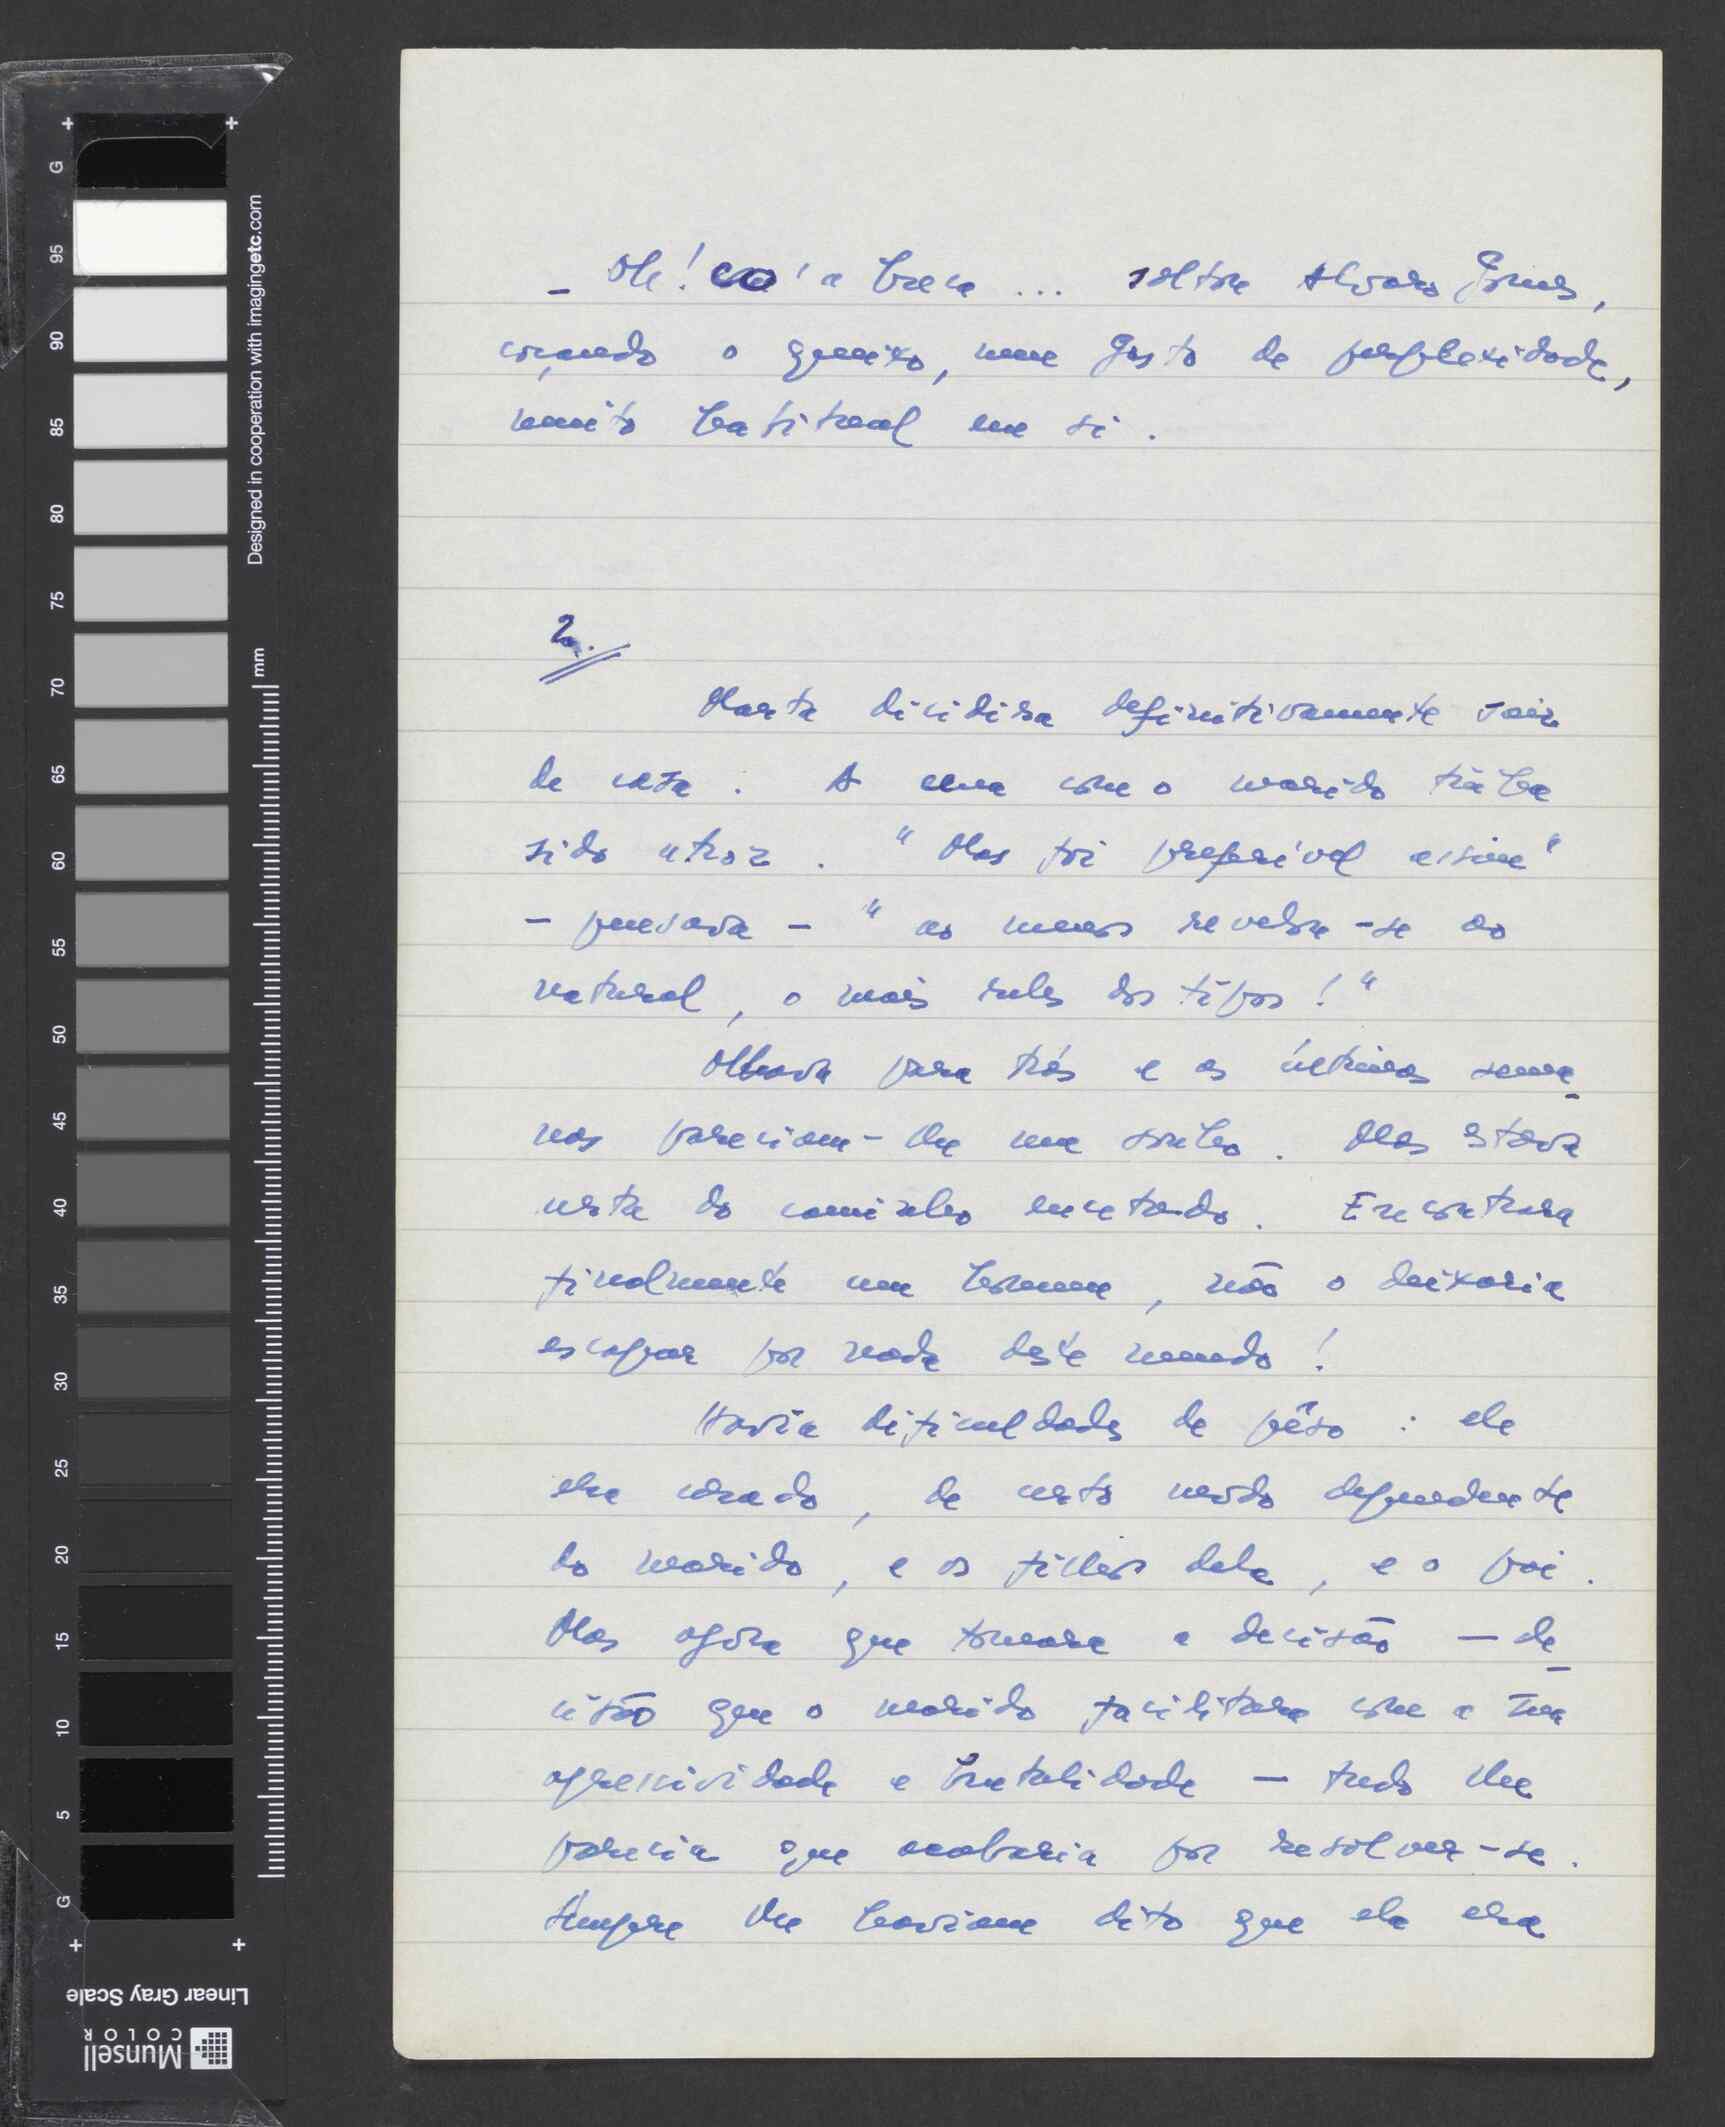 G
95
90
85
80
75
70
65
60
55
50
45
40
35
30
25
20
15
10
5
G
Designed in cooperation with imagingetc.com
mm
Linear Gray Scale
Munsell
COLOR
– Oh! a breca ... soltou Alvaro Gomes,
coçando o queixo, num gesto de perplexidade,
muito habitual em si.
2.
Marta dicidira definitivamente sair
de casa. A cena com o marido tinha
sido atroz. "Mas foi preferível assim"
– pensava – "ao menos revelou-se ao
natural, o mais reles dos tipos!"
Olhava para trás e as últimas sema-
nas pareciam-lhe um sonho. Mas estava
certa do caminho encetado. Encontrara
finalmente um homem, não o deixaria
escapar por nada deste mundo!
Havia dificuldades de pêso: ele
era casado, de certo modo dependente
do marido, e os filhos dela, e o pai.
Mas agora que tomara a decisão – de-
cisão que o marido facilitara com a sua
agressividade e brutalidade – tudo lhe
parecia que acabaria por resolver-se.
Sempre lhe haviam dito que ela era